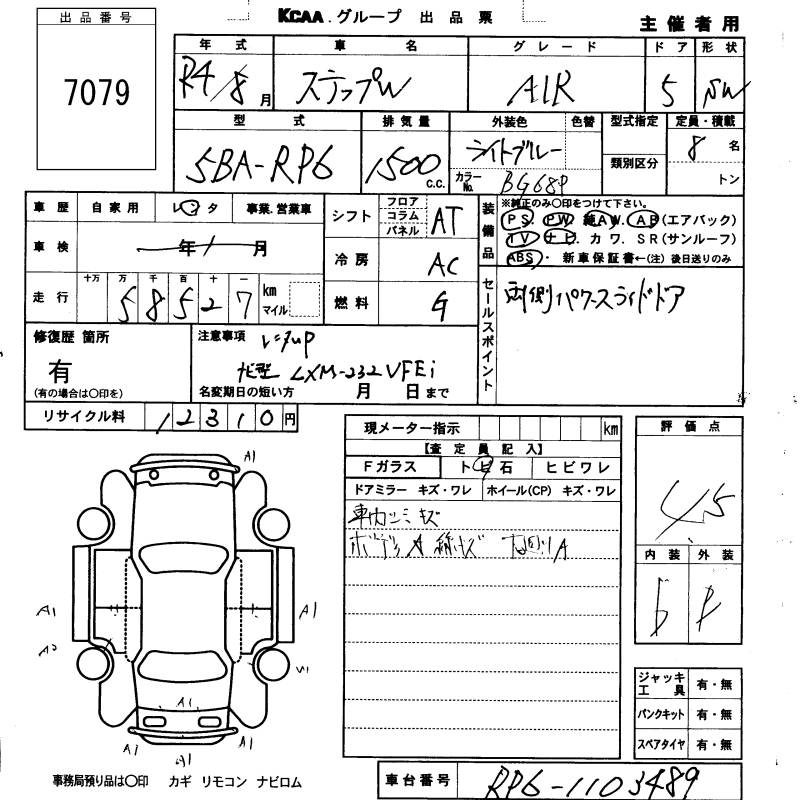 出品番号
7079
KCAA.グループ 出品票
主催者用
年式 車名 グレード ドア 形状
R4/8月 ステップW AIR 5 SW
型式 排気量 外装色 色替 型式指定 定員・積載
5BA-RP6 1500 C.C. ライトブルー 類別区分 8名
カラーNo. BG68P トン
車歴 自家用 レンタ 事業.営業車
シフト フロア コラム パネル AT
車検 年 月
冷房 AC
走行 十万 万 千 百 十 一
58527 km マイル
燃料 G
装備品 ※純正のみ〇印をつけて下さい。
PS PW 純AW. AB(エアバック)
TV ナビ. カワ. SR(サンルーフ)
ABS・ 新車保証書←(注) 後日送りのみ
セールスポイント
両側パワースライドドア
修復歴 箇所
有
(有の場合は〇印を)
注意事項 レンタup
ナビ型 LXM-232VFEi
名変期日の短い方 月 日まで
リサイクル料 12310円
現メーター指示 km
【査定員記入】
Fガラス トビ石 ヒビワレ
ドアミラー キズ・ワレ ホイール(CP) キズ・ワレ
車内シミキズ
ボディ 線キズ A
評価点
4.5
内装 外装
ジャッキ工具 有・無
パンクキット 有・無
スペアタイヤ 有・無
A1
A1 A1
A2
A1
A1 A1 A1
事務局預り品は〇印 カギ リモコン ナビロム
車台番号 RP6-1103489